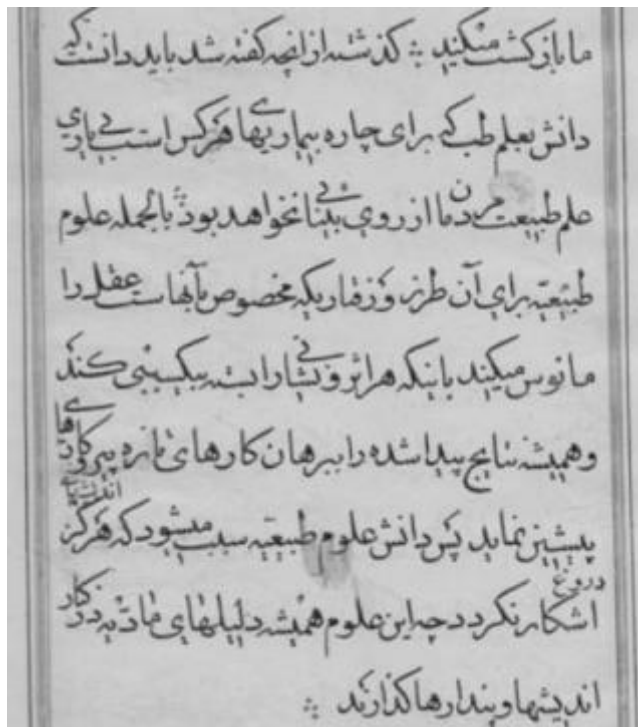 ما بازگشت میکنید ∴ گذشته از انچه گفته شد باید دانست که
دانش بعلم طب که برای چاره بیماریهای هرکس است بی یاری
علم طبیعت مردن ما از روی بینائی نخواهد بود ∴ بالجمله علوم
طبیعیه برای آن طرز و رفتاریکه مخصوص بآنهاست عقل را
مانوس میکند باینکه هر اثر و نشانی را بسته بیک سببی کند
و همیشه نتایج پیدا شده را ببرهان کارهای تازه پیرو کاریهای
پیشین نماید پس دانش علوم طبیعیه سبب میشود که هرگز اندیشهای
اشکار نگردد چه این علوم همیشه دلیلهای مادّیه در کار دروغ
اندیشها و پندارها گذارند ∴